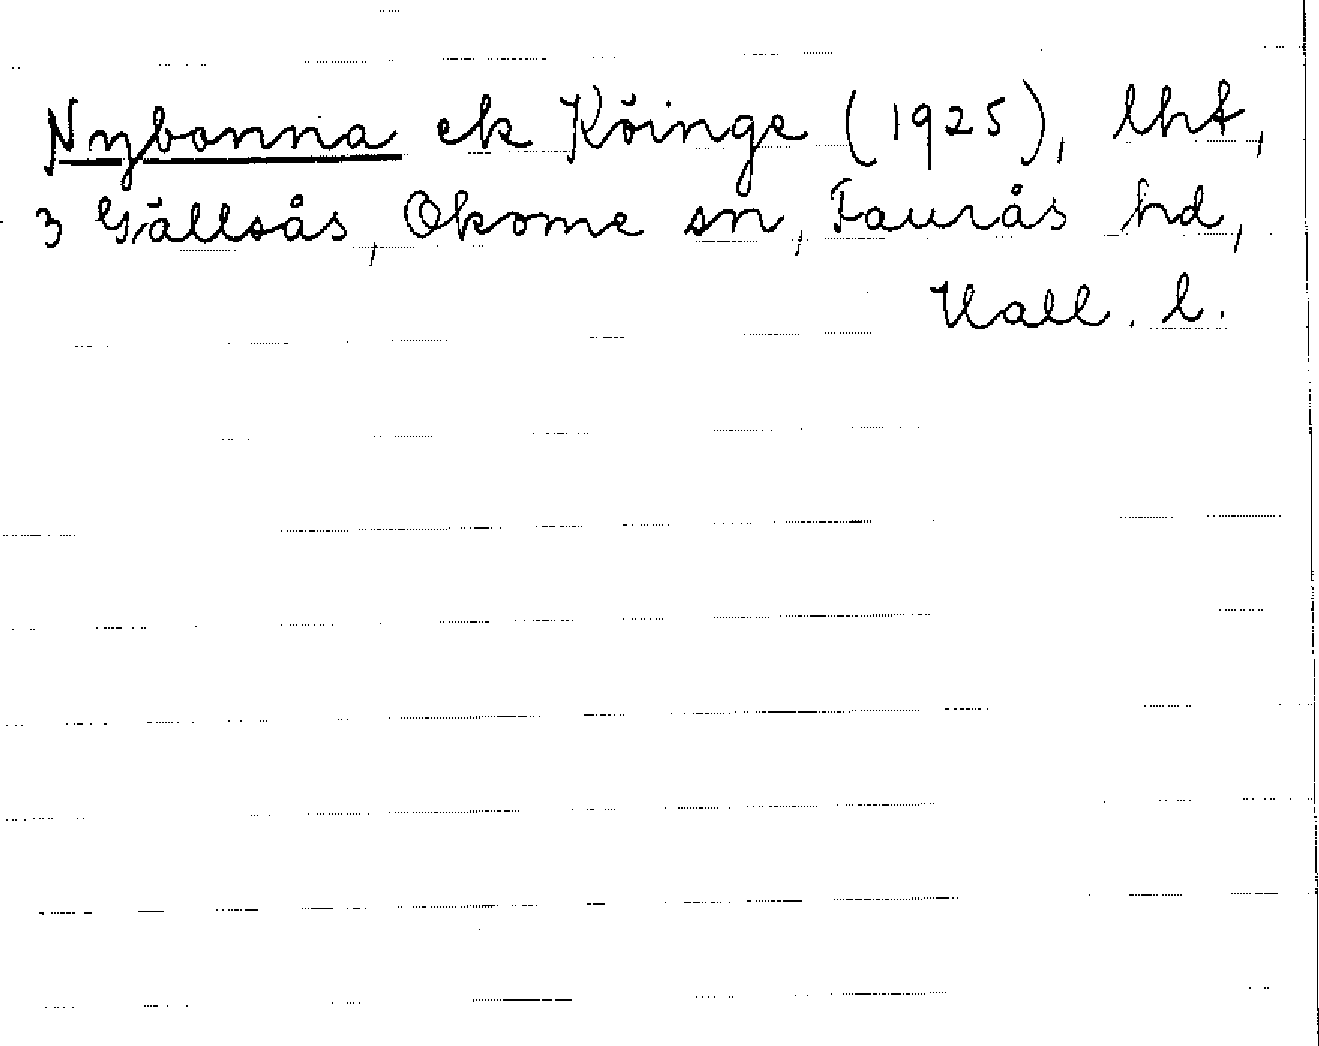 Nybonna ek Köinge (1925), lht,
3 Gällsås, Okome sn, Faurås hd,
Hall. l.